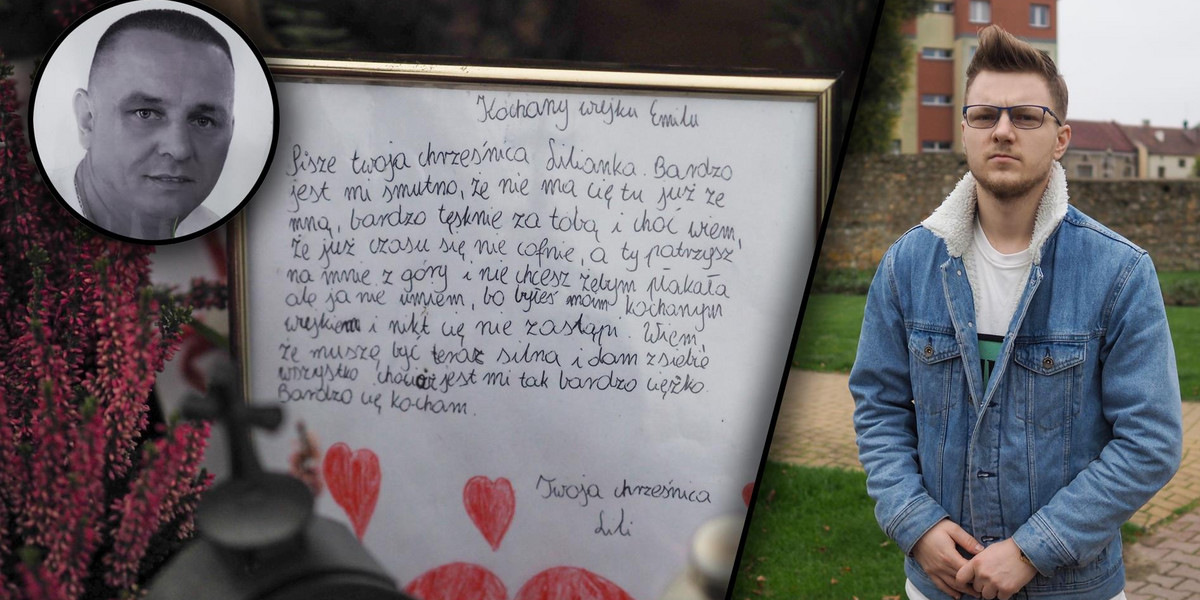 Kochany wujku Emilu
Pisze twoja chrześnica Lilianka. Bardzo
jest mi smutno, że nie ma cię tu już ze
mną, bardzo tęsknię za tobą i choć wiem,
że już czasu się nie cofnie, a ty patrzysz
na mnie z góry i nie chcesz żebym płakała
ale ja nie umiem, bo byłeś moim kochanym
wujkiem i nikt cię nie zastąpi. Wiem,
że muszę być teraz silna i dam z siebie
wszystko chociaż jest mi tak bardzo ciężko.
Bardzo cię kocham.
Twoja chrześnica
Lili